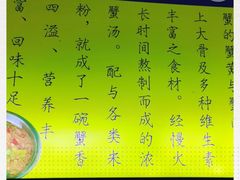 蟹的蟹黄与蟹
上大骨及多种维生素
丰富之食材。经慢火
长时间熬制而成的浓
蟹汤。配与各类来
粉，就成了一碗蟹香
四溢、营养丰
富、回味十足